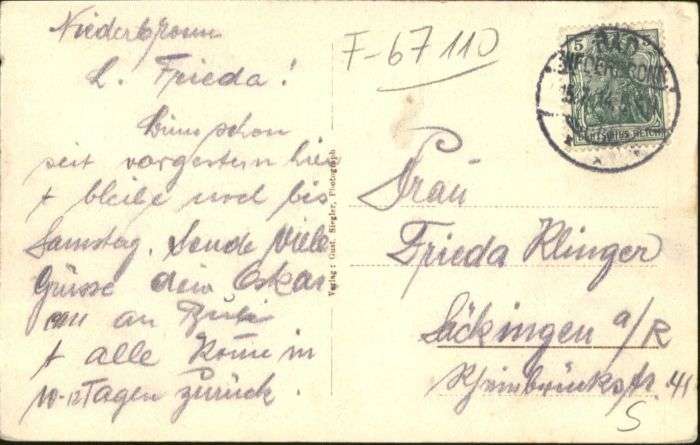 Niederbronn
L. Frieda!
Bin schon
seit vorgestern hier
+ bleibe noch bis
Samstag. Sende Viele
Grüsse dein Oskar
an
+ alle Komm in
10-12 Tagen zurück.
F-67110
Verlag: Gust. Siegler, Photograph
5
BAD
NIEDERBRONN
DEUTSCHES REICH
Frau
Frieda Klinger
Säckingen a/R
Rheinbrückstr. 41
S